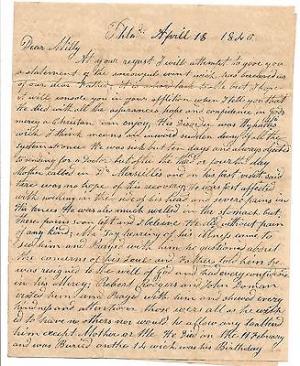 Phila. April 18 1846.
Dear Milly
At your request I will attempt to give you
a statement of the sorrowful event which has bereaved us
of our dear Father, it is a hard task to the best I hope
it will console you in your affliction when I tell you that
he died with all the assurance hope and confidence in God's
mercy a Christian can enjoy, His disorder was
which I think means an inward
system at once He was sick but ten days and always objected
to sending for a Doctor but after the third or fourth day
Mother called in Dr. Marseilles and on his first visit said
there was no hope of his recovery He was first affected
with swelling in the side of his head and severe pains in
his knees He was also much swelled in the stomach but
these pains soon left and I believe He died without pain
of any kind, the Day
see him and Prayed with him he questioned about
the concerns of his Soul and Father told him he
was resigned to the will of God and had every confidence
in his Mercy; Robert Rodgers and John Dorman
visited him and Prayed with him and showed every
kindness and attention those were all as he wish
ed to have no others nor would he allow any to attend
him except Mother or Me He Died on the 11 February
and was Buried on the 14 which was his Birthday